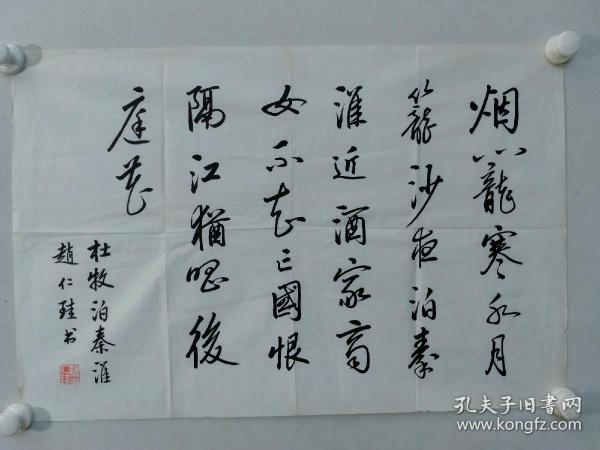 烟笼寒水月
笼沙夜泊秦
淮近酒家商
女不知亡國恨
隔江猶唱後
庭花
杜牧泊秦淮
趙仁珪书
孔夫子旧书网
www.kongfz.com